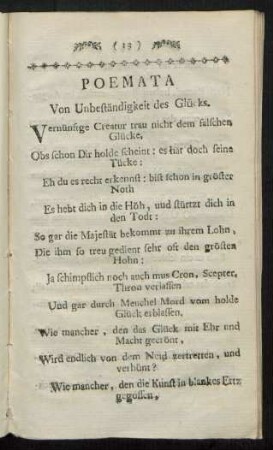 ( 33 )
POEMATA
Von Unbeständigkeit des Glücks.
Vernünftige Creatur trau nicht dem falschen
Glücke,
Obs schon Dir holde scheint: es hat doch seine
Tücke:
Eh du es recht erkennst: bist schon in gröster
Noth
Es hebt dich in die Höh, uud stürtzt dich in
den Todt:
So gar die Majestät bekommt zu ihrem Lohn,
Die ihm so treu gedient sehr oft den grösten
Hohn:
Ja schimpflich noch auch mus Cron, Scepter,
Thron verlassen
Und gar durch Meuchel Mord vom holde
Glück erblassen,
Wie mancher, den das Glück mit Ehr und
Macht gecrönt,
Wird endlich von dem Neid zertretten, und
verhönt?
Wie mancher, den die Kunst in blankes Ertz
gegossen,